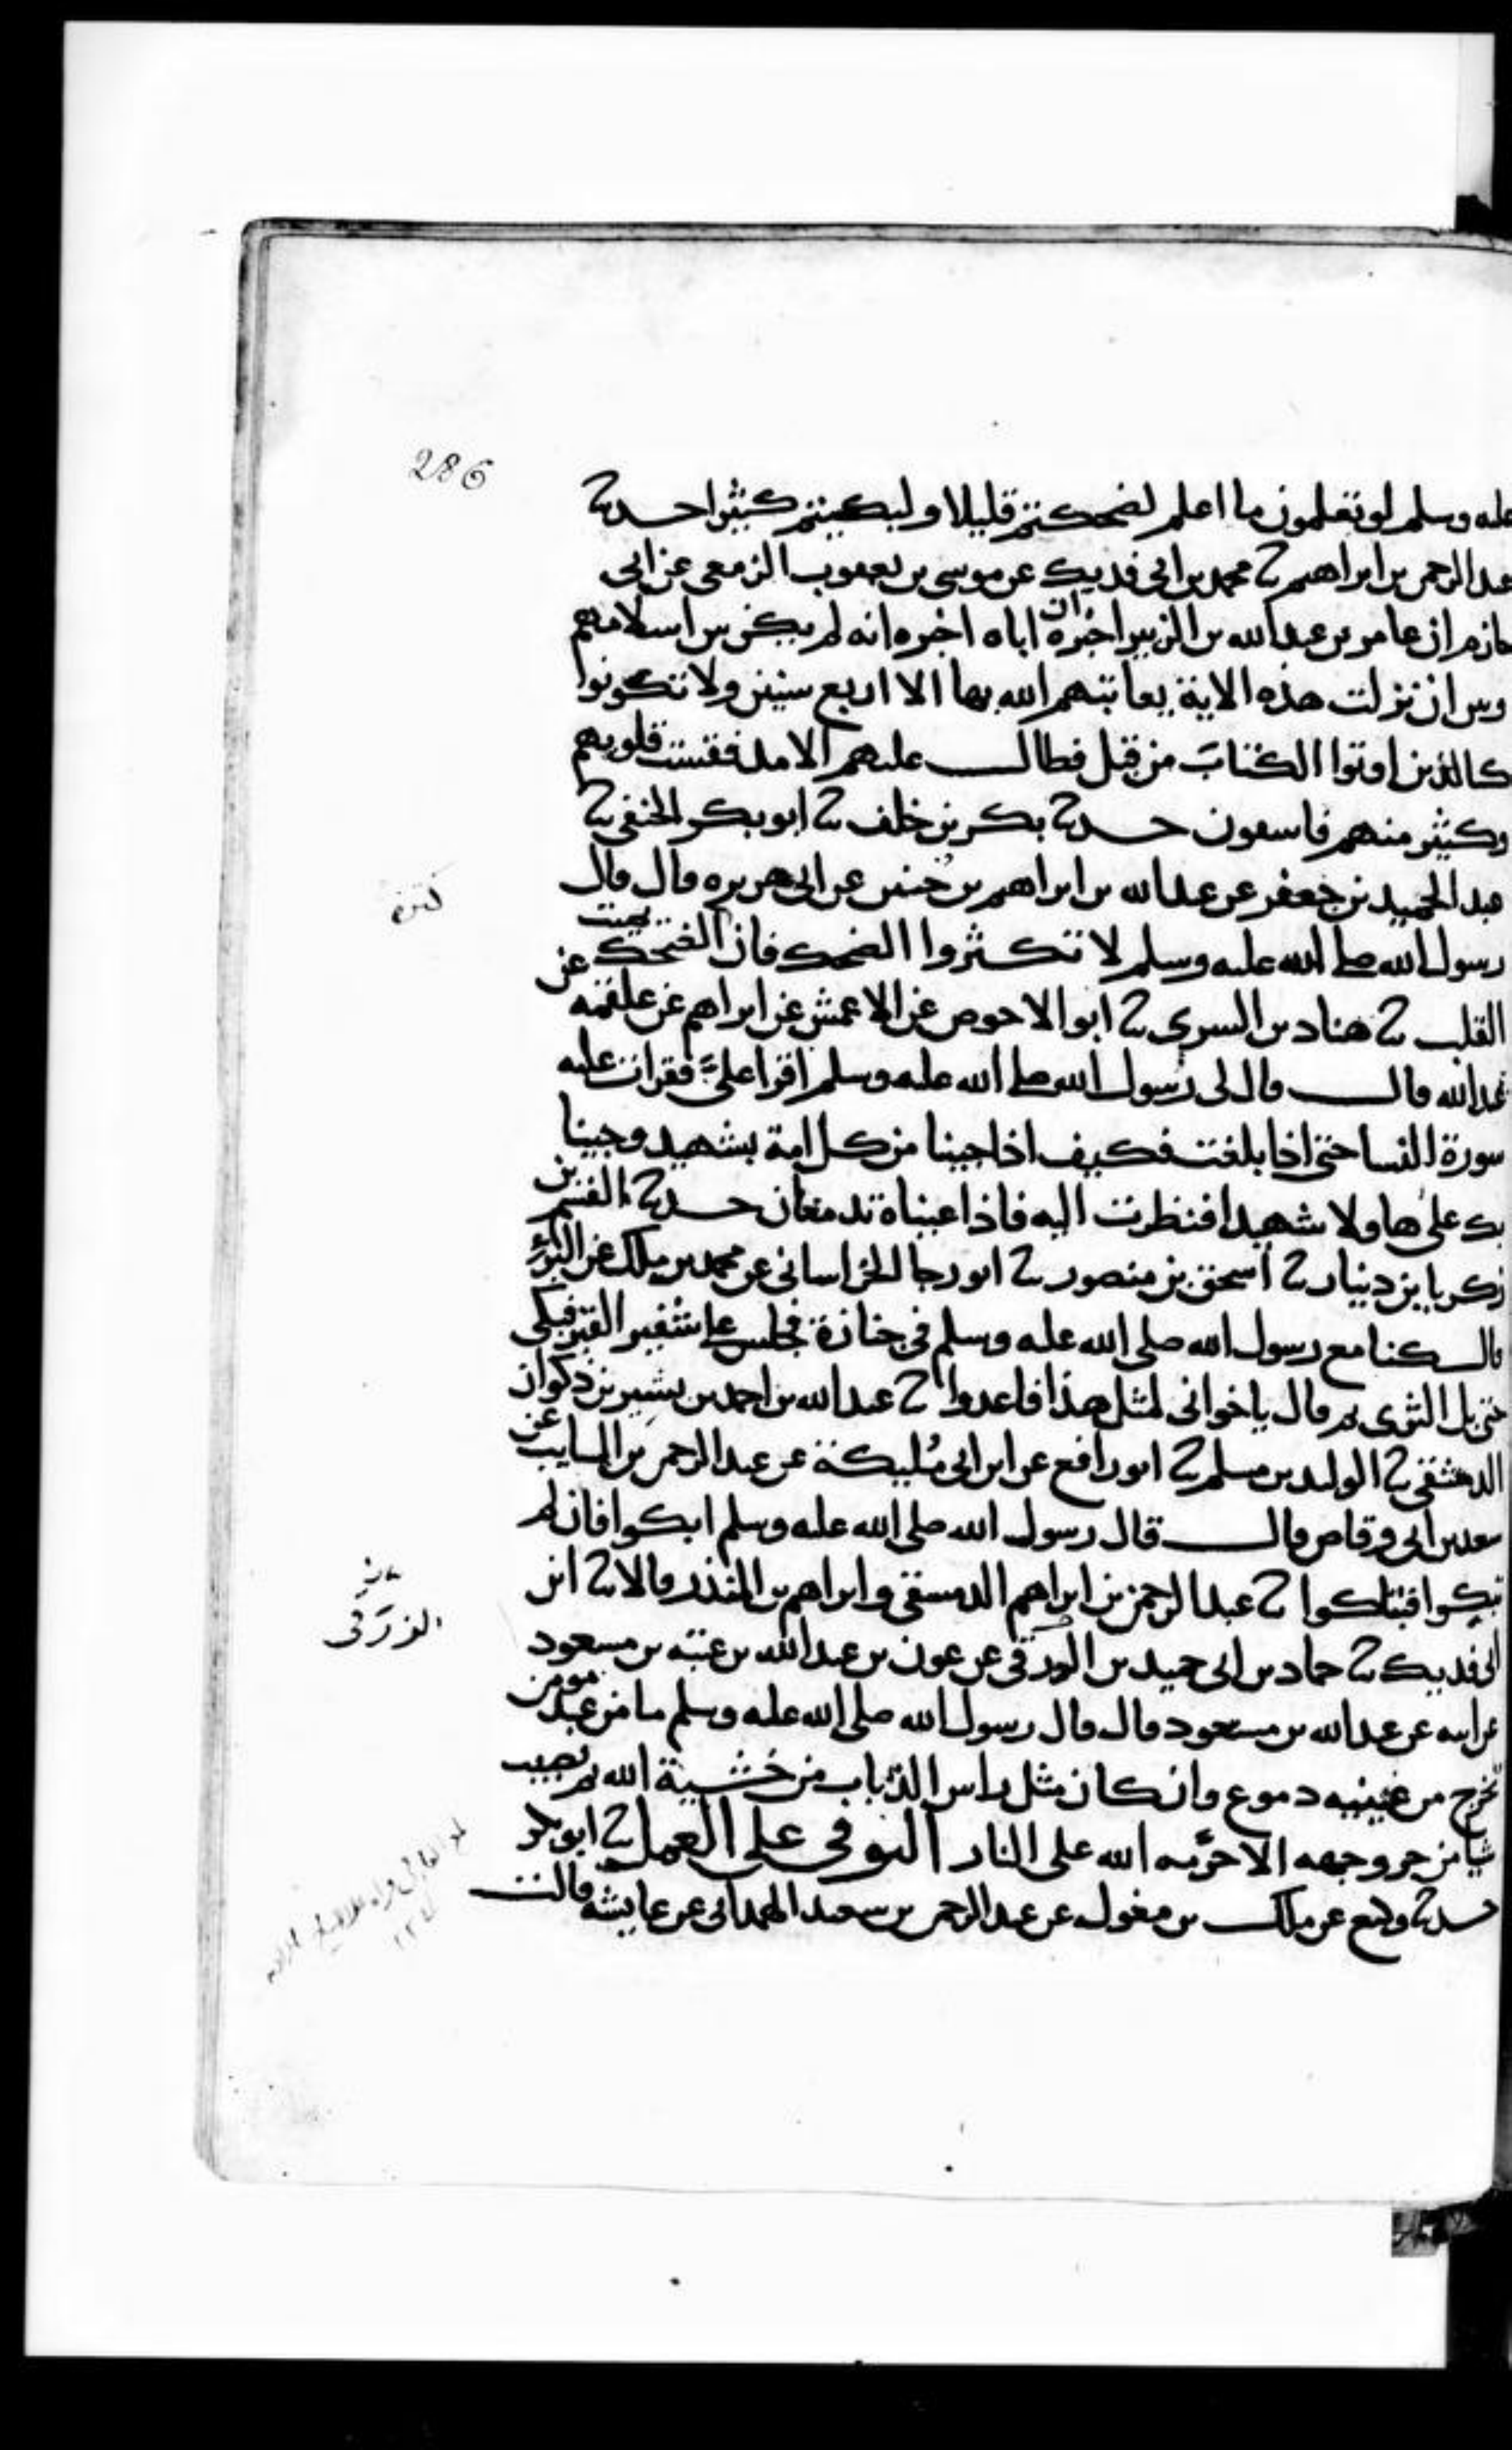 286
عليه وسلم لو تعلمون ما اعلم لضحكتم قليلا ولبكيتم كثيرا حدثنا
عبد الرحمن بن ابراهيم ثنا محمد بن ابي فديك عن موسى بن يعقوب الزمعي عن ابي
حازم ان عامر بن عبد الله بن الزبير اخبره ان اباه اخبره انه لم يكن بين اسلامهم
وبين ان نزلت هذه الاية يعاتبهم الله بها الا اربع سنين ولا تكونوا
كالذين اوتوا الكتاب من قبل فطال عليهم الامد فقست قلوبهم
وكثير منهم فاسقون حدثنا بكر بن خلف ثنا ابو بكر الحنفي ثنا
عبد الحميد بن جعفر عن عبد الله بن ابراهيم بن حنين عن ابي هريره قال قال
كثرة
رسول الله صلى الله عليه وسلم لا تكثروا الضحك فان الضحك يميت
القلب ثنا هناد بن السري ثنا ابو الاحوص عن الاعمش عن ابراهيم عن علقمه عن
عبد الله قال قال لي رسول الله صلى الله عليه وسلم اقرا عليَّ فقرات عليه
سورة النسا حتى اذا بلغت فكيف اذا جينا من كل امة بشهيد وجينا
بك على هاولا شهيدا فنظرت اليه فاذا عيناه تدمعان حدثنا القسم بن
زكريا بن دينار ثنا اسحق بن منصور ثنا ابو رجا الخراساني عن محمد بن ملك عن البراء
قال كنا مع رسول الله صلى الله عليه وسلم في جنازة فجلس على شفير القبر فبكى
حتى بل الثرى ثم قال ياخواني لمثل هذا فاعدوا ثنا عبد الله بن احمد بن بشير بن ذكوان
الدمشقي ثنا الوليد بن مسلم ثنا ابو رافع عن ابن ابي مُليكة عن عبد الرحمن بن السايب عن
سعد بن ابي وقاص قال قال رسول الله صلى الله عليه وسلم ابكوا فان لم
تبكوا فتباكوا ثنا عبد الرحمن بن ابراهيم الدمشقي وابراهيم بن المنذر قالا ثنا ابن
ابي فديك ثنا حماد بن ابي حميد بن الزرقي عن عون بن عبد الله بن عتبه بن مسعود
الزرَقى
عن ابيه عن عبد الله بن مسعود قال قال رسول الله صلى الله عليه وسلم ما من عبد مومن
تخرج من عينيه دموع وان كان مثل راس الذباب من خشية الله ثم تصيب
شيا من حر وجهه الا حرَّمه الله على النار التوقي على العمل ثنا ابو بكر
حدثنا وكيع عن ملك بن مغول عن عبد الرحمن بن سعيد الهمداني عن عايشه قالت